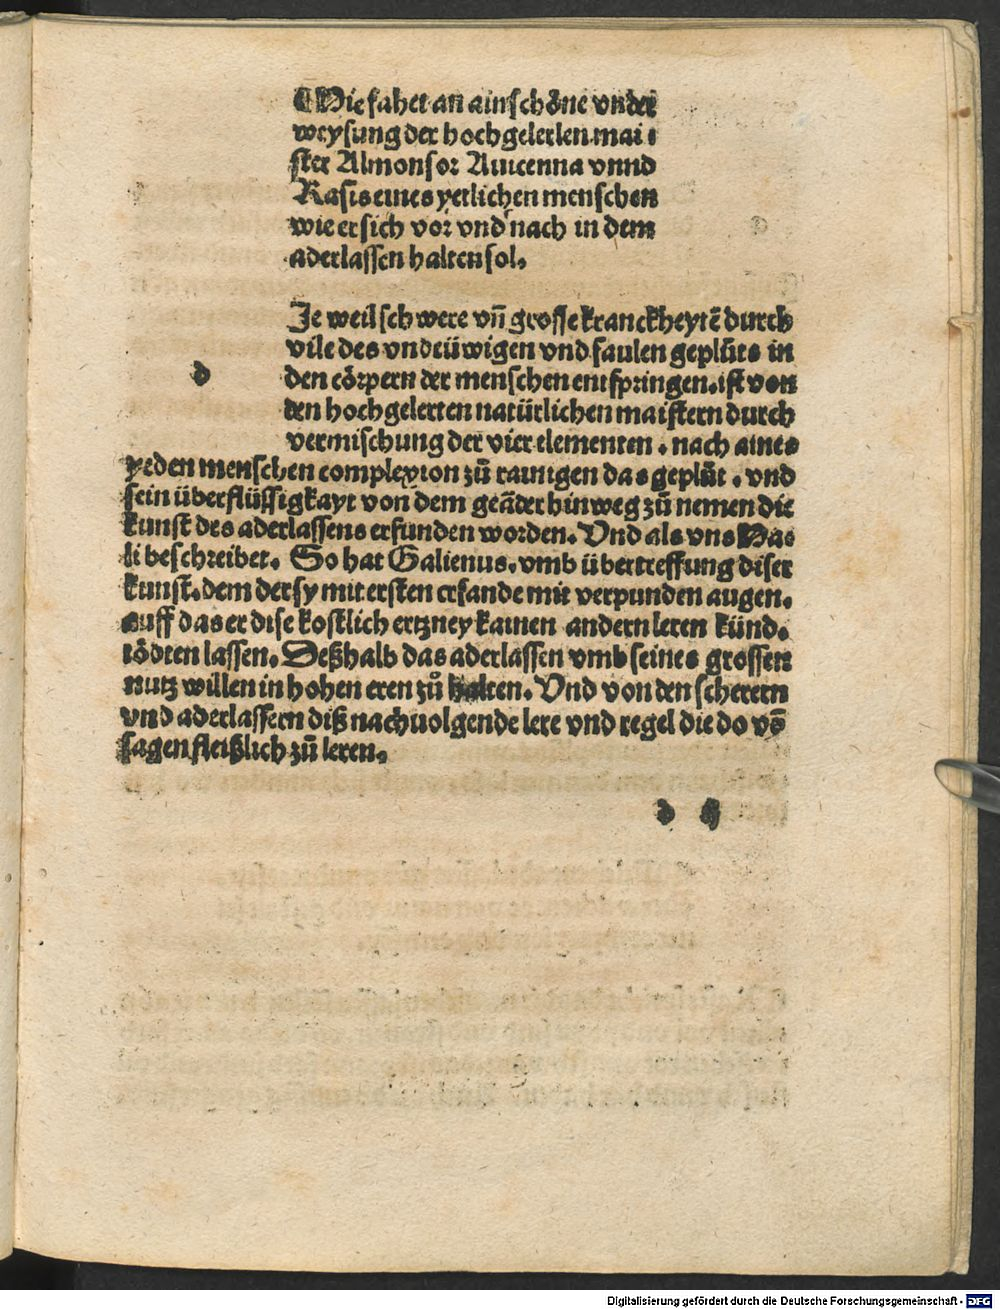 ¶Hie fahet an ain schöne vnder
weysung der hochgelerten mai⸗
ster Almonsor Auicenna vnnd
Rasis eines yetlichen menschen
wie er sich vor vnd nach in dem
aderlassen halten sol.
Je weil schwere vñ grosse kranckheytē durch
vile des vndeüwigen vnd faulen geplüts in
d den cörpern der menschen entspringen. ist von
den hochgelerten natürlichen maistern durch
vermischung der vier elementen. nach aines
yeden menschen complexion zů rainigen das geplůt. vnd
sein überflüssigkayt von dem geäder hinweg zů nemen die
kunst des aderlassens erfunden worden. Vnd als vns Ha⸗
li beschreibet. So hat Galienus. vmb übertreffung diser
kunst. dem der sy mit ersten erfande mit verpunden augen.
auff das er dise kostlich ertzney kainen andern leren künd.
tödten lassen. Deßhalb das aderlassen vmb seines grossen
nutz willen in hohen eren zů halten. Vnd von den scherern
vnd aderlassern diß nachuolgende lere vnd regel die do vō
sagen fleißlich zů leren.
d ij
Digitalisierung gefördert durch die Deutsche Forschungsgemeinschaft - DFG